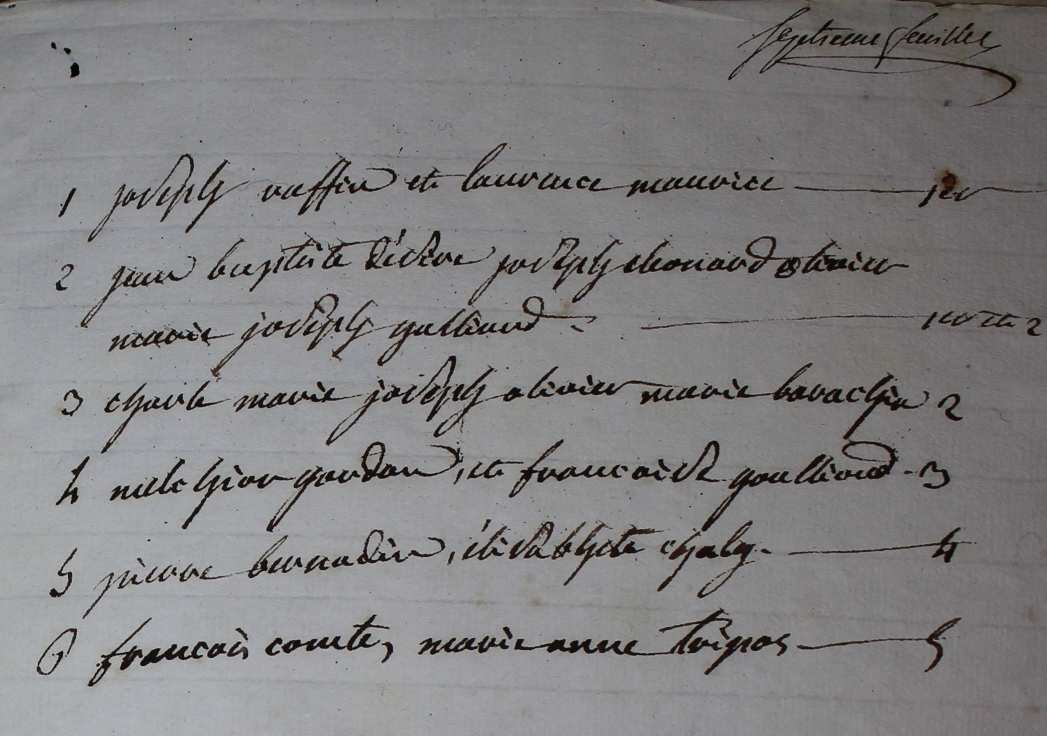 septieme feuillet
1 joseph ruffin et laurence maurice 1er
2 jean baptiste joseph olivier
marie joseph gulliaud 1er et 2
3 charle marie joseph olivier marie barachin 2
4 melchior gardan, et francoise goulliaud 3
5 pierre bernadin, élisabhete chaly 4
6 francois comte, marie anne tripos 5